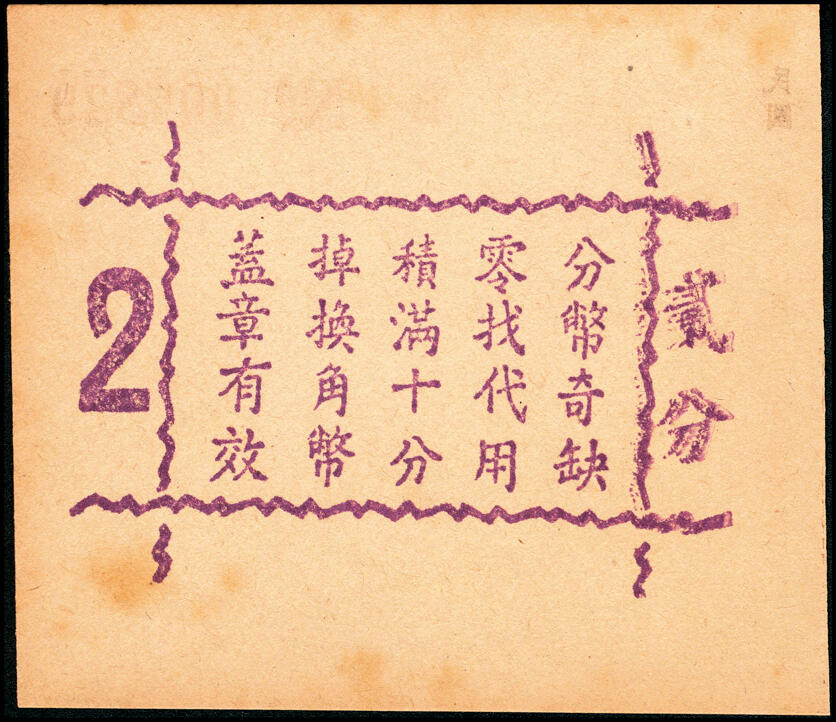 貳分
分幣奇缺
零找代用
積滿十分
掉換角幣
蓋章有效
2
民國